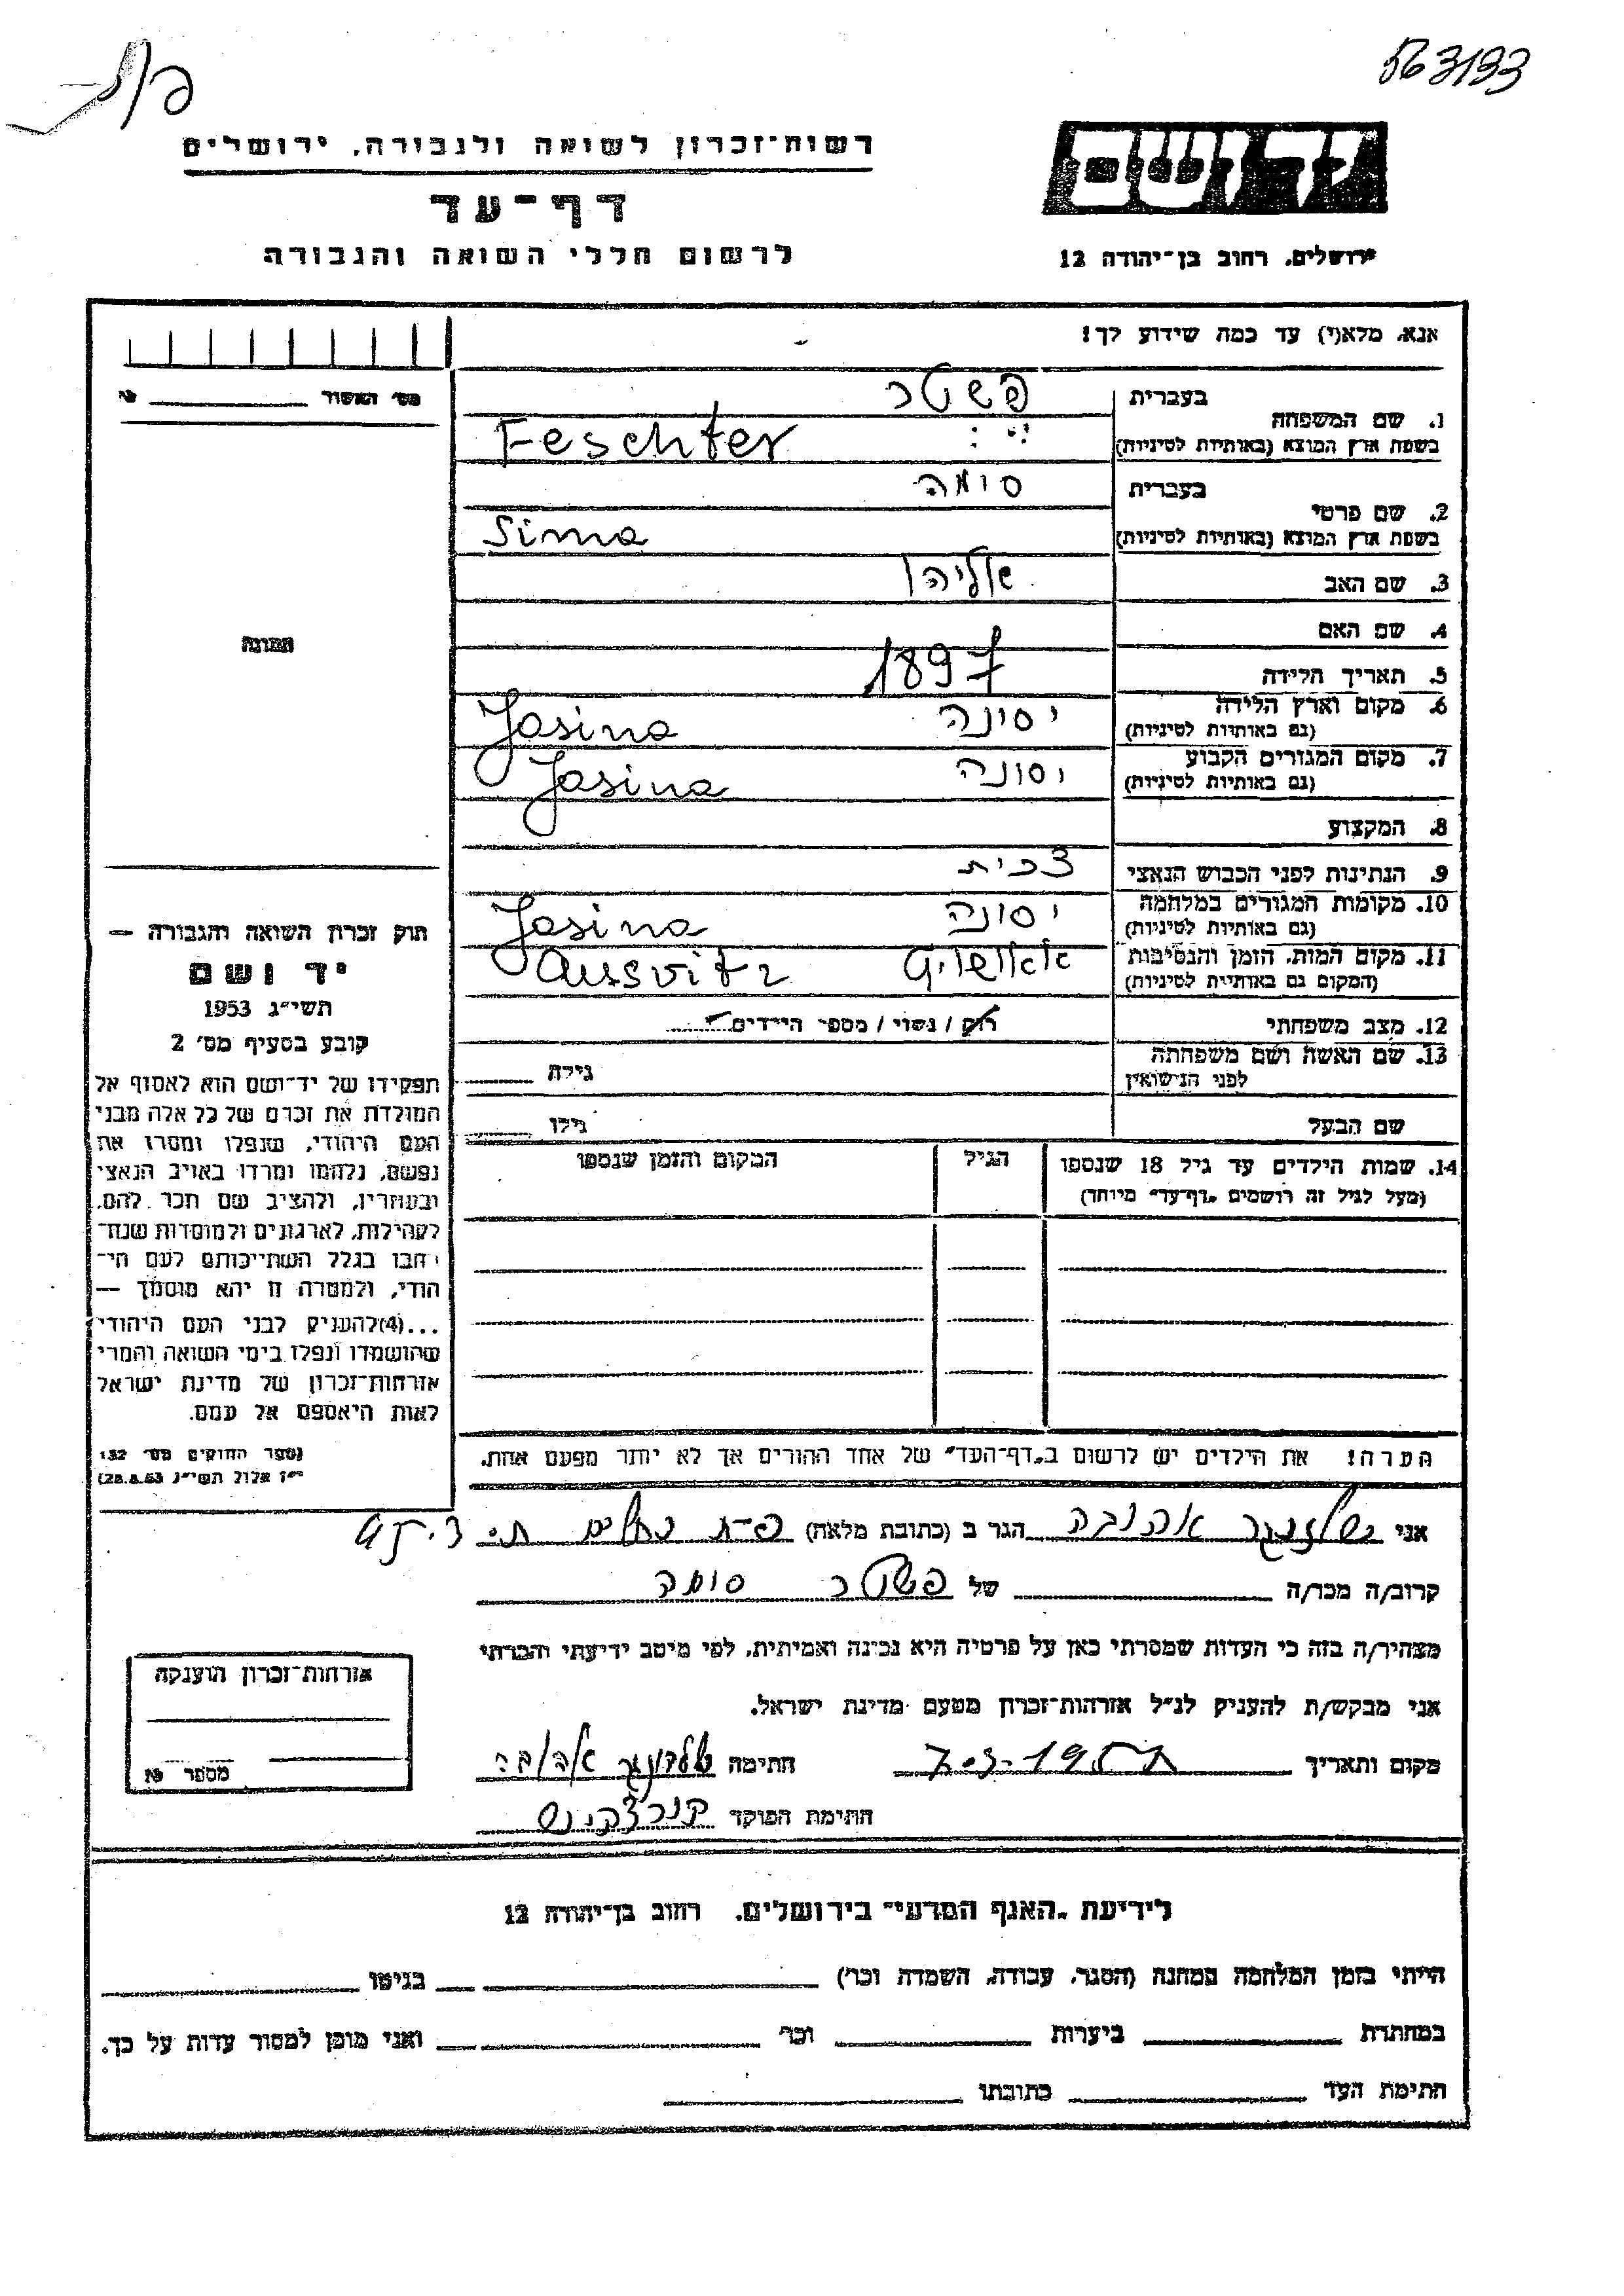 563193
רשות־זכרון לשואה ולגבורה, ירושלים
דף־עד
לרשום חללי השואה והגבורה
יד ושם
ירושלים, רחוב בן־יהודה 12
אנא, מלא(י) עד כמה שידוע לך!
מס׳ האשור №
1. שם המשפחה
בעברית פשטר
בשפת ארץ המוצא (באותיות לטיניות) Feschter
2. שם פרטי
בעברית סימה
בשפת ארץ המוצא (באותיות לטיניות) Sima
3. שם האב אליהו
4. שם האם
5. תאריך הלידה 1897
6. מקום וארץ הלידה (גם באותיות לטיניות) יסינה Jasina
7. מקום המגורים הקבוע (גם באותיות לטיניות) יסינה Jasina
8. המקצוע
9. הנתינות לפני הכבוש הנאצי צכית
10. מקומות המגורים במלחמה (גם באותיות לטיניות) יסינה Jasina
11. מקום המות, הזמן והנסיבות (המקום גם באותיות לטיניות) Ausvitz
12. מצב משפחתי רוק / נשוי / מספר הילדים
13. שם האשה ושם משפחתה לפני הנישואין גילה
שם הבעל גילו
14. שמות הילדים עד גיל 18 שנספו הגיל המקום והזמן שנספו
(מעל לגיל זה רושמים „דף־עד״ מיוחד)
הערה! את הילדים יש לרשום ב„דף־העד״ של אחד ההורים אך לא יותר מפעם אחת.
תמונה
חוק זכרון השואה והגבורה —
יד ושם
תשי״ג 1953
קובע בסעיף מס׳ 2
תפקידו של יד־ושם הוא לאסוף אל
המולדת את זכרם של כל אלה מבני
העם היהודי, שנפלו ומסרו את
נפשם, נלחמו ומרדו באויב הנאצי
ובעוזריו, ולהציב שם וזכר להם,
לקהילות, לארגונים ולמוסדות שנח־
רבו בגלל השתייכותם לעם הי־
הודי, ולמטרה זו יהא מוסמך —
...(4)להעניק לבני העם היהודי
שהושמדו ונפלו בימי השואה והמרי
אזרחות־זכרון של מדינת ישראל
לאות היאספם אל עמם.
(ספר החוקים מס׳ 132
י״ז אלול תשי״ג 28.8.53)
אני אהובה הגר ב (כתובת מלאה)
קרוב/ה מכר/ה של פשטר סימה
מצהיר/ה בזה כי העדות שמסרתי כאן על פרטיה היא נכונה ואמיתית, לפי מיטב ידיעתי והכרתי
אני מבקש/ת להעניק לנ״ל אזרחות־זכרון מטעם מדינת ישראל.
מקום ותאריך חתימה אהובה
חתימת הפוקד
אזרחות־זכרון הוענקה
מספר №
לידיעת „האגף המדעי״ בירושלים, רחוב בן־יהודה 12
הייתי בזמן המלחמה במחנה (הסגר, עבודה, השמדה וכר׳) בגיטו
במחתרת ביערות וכר׳ ואני מוכן למסור עדות על כך.
חתימת העד כתובתו